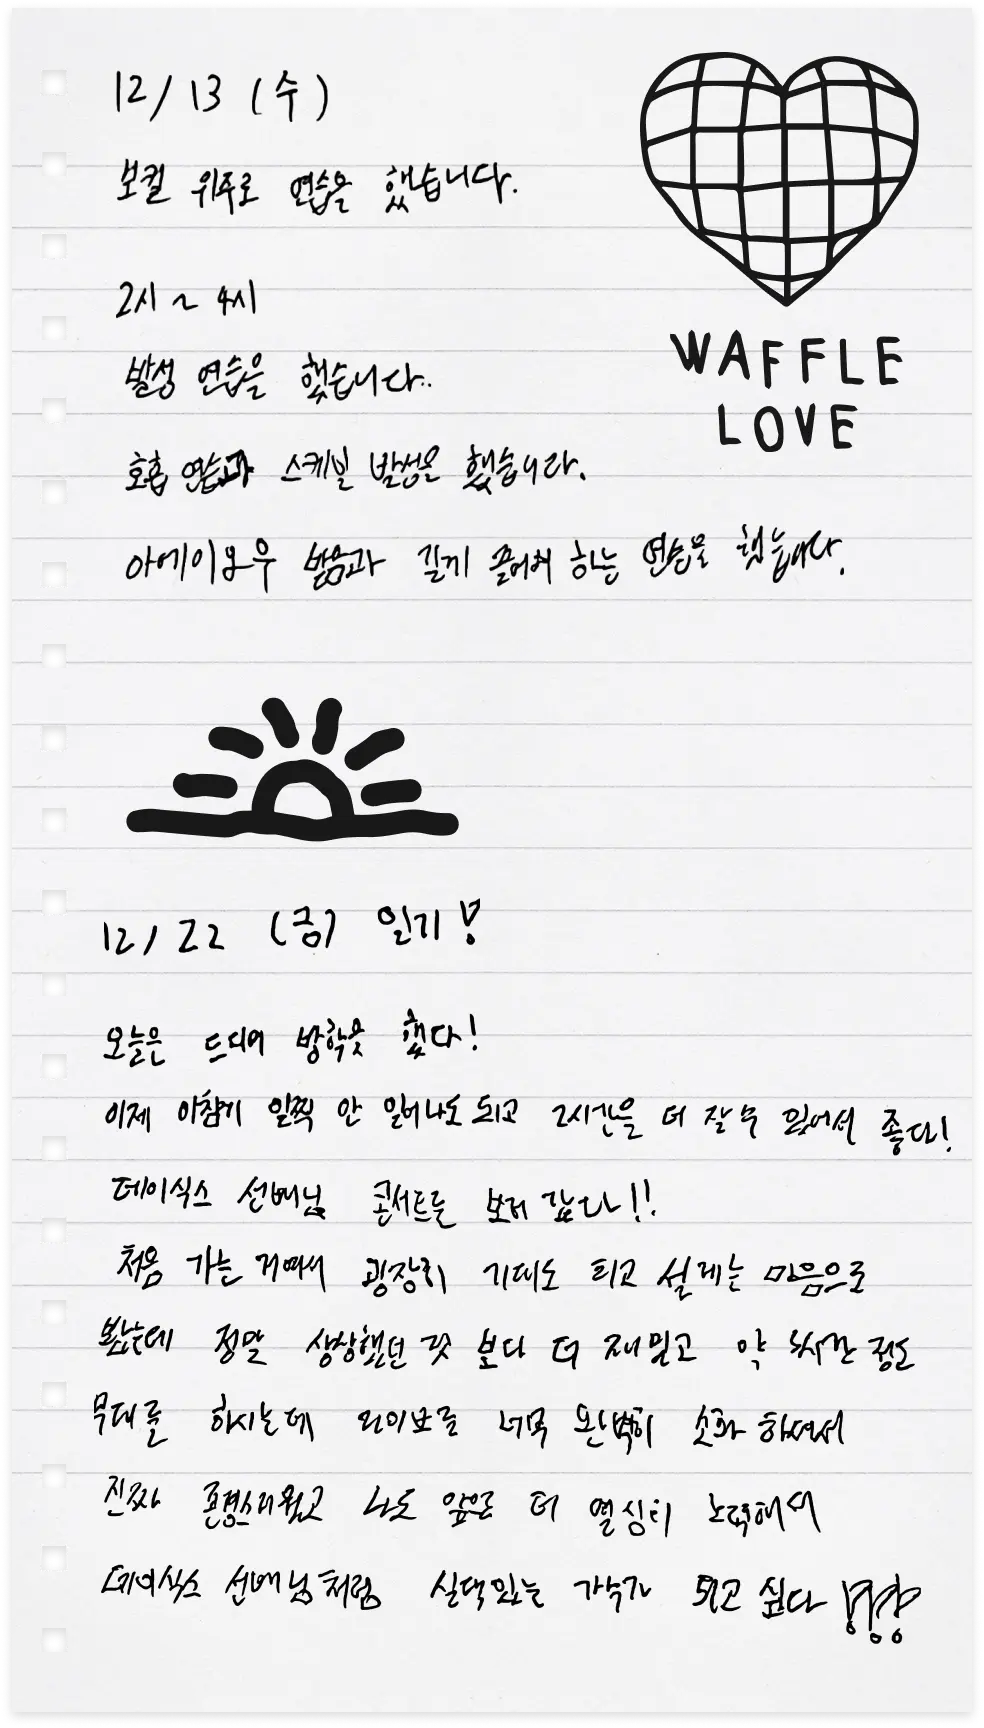 12/13 (수)
보컬 위주로 연습을 했습니다.
WAFFLE
LOVE
2시 ~ 4시
발성 연습을 했습니다..
호흡 연습과 스케일 발성을 했습니다.
아에이오우 발음과 길게 하는 연습을 했습니다.
12/22 (금) 일기!
오늘은 드디어 방학을 했다!
이제 아침에 일찍 안 일어나도 되고 2시간을 더 잘 수 있어서 좋다!
데이식스 선배님 콘서트를 보러 갔다!!
처음 가는 거여서 굉장히 기대도 되고 설레는 마음으로
봤는데 정말 상상했던 것 보다 더 재밌고 약 시간 정도
무대를 하시는데 라이브를 너무 완벽히 소화 하셔서
진짜 존경스러웠고 나도 앞으로 더 열심히 노력해서
데이식스 선배님처럼 실력있는 가수가 되고 싶다 !!!